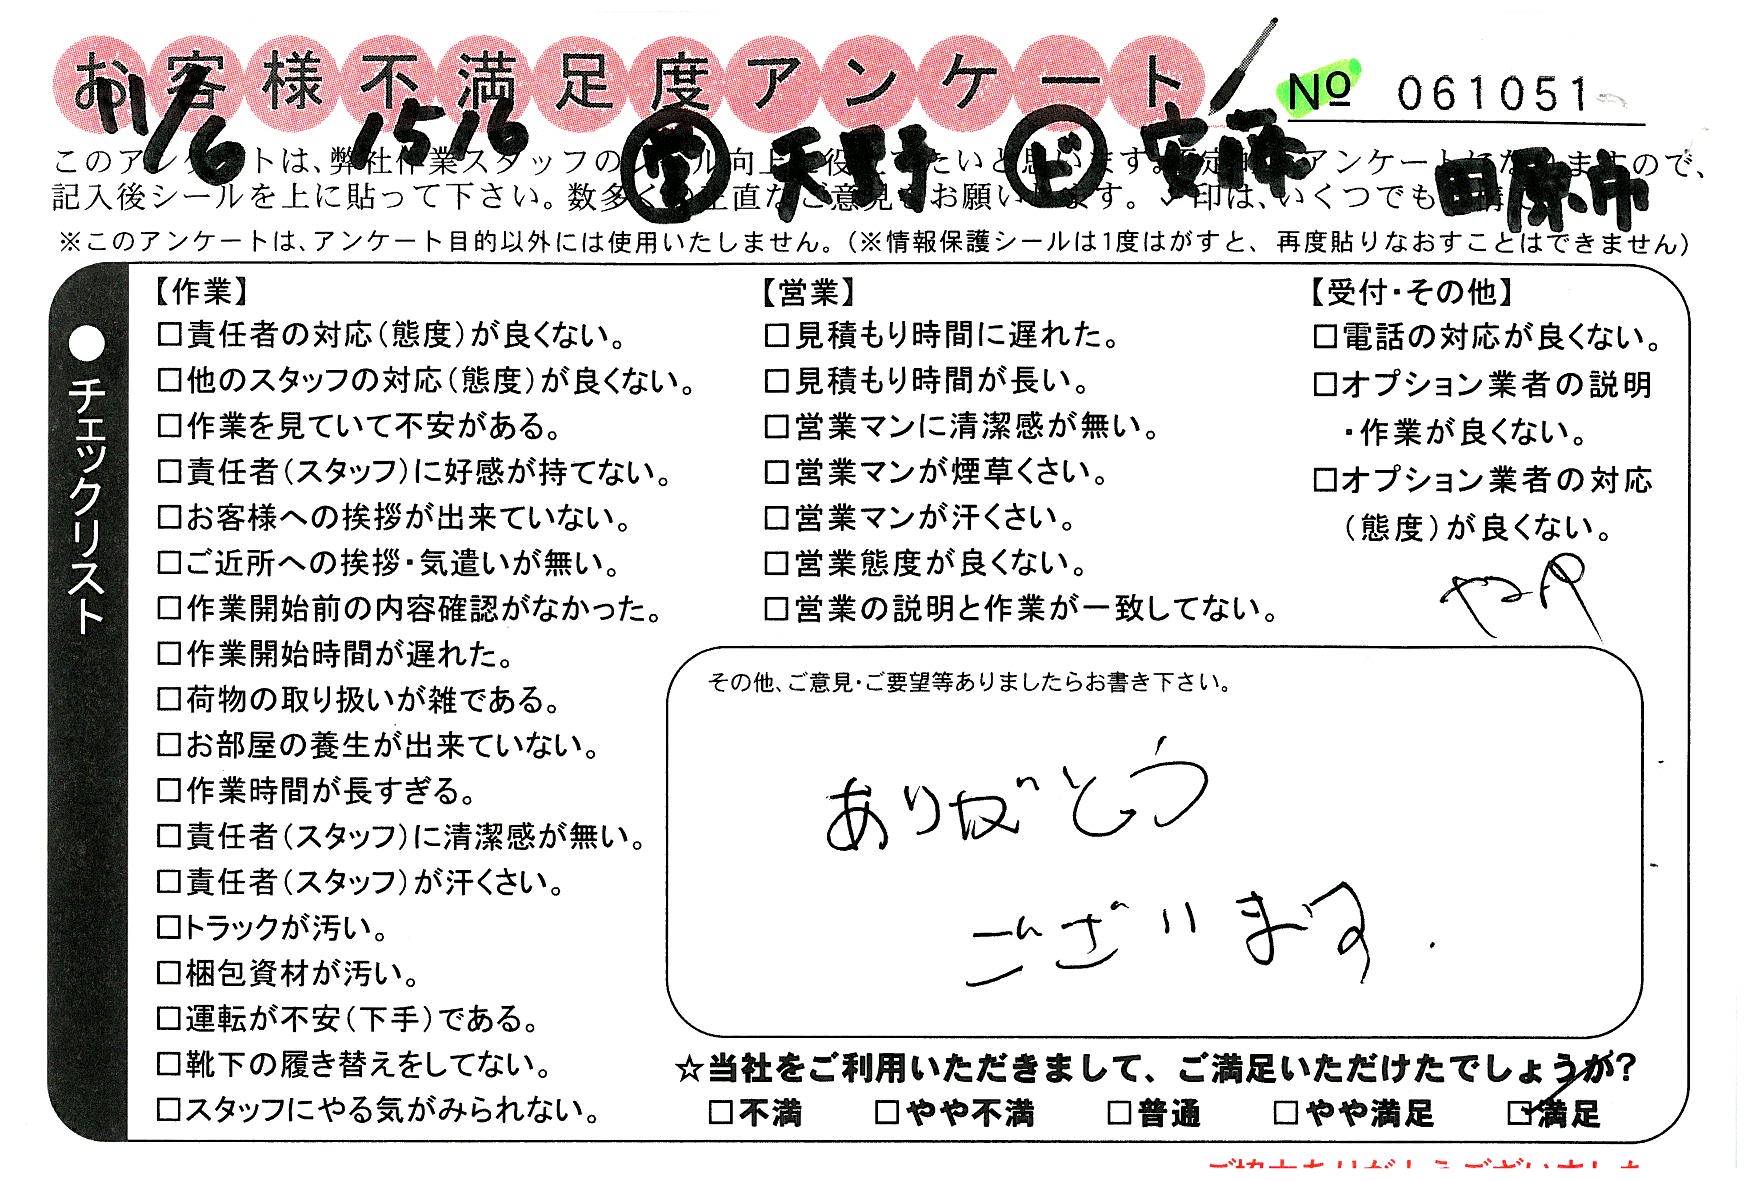 お客様不満足度アンケート
No 061051
11/6 1516 営 天野 ビ 安藤 田原市
このアンケートは、弊社作業スタッフのレベル向上に役立てたいと思います。
記入後シールを上に貼って下さい。数多くの正直なご意見をお願いします。✓印は、いくつでも
※このアンケートは、アンケート目的以外には使用いたしません。(※情報保護シールは1度はがすと、再度貼りなおすことはできません)
●チェックリスト
【作業】
□責任者の対応(態度)が良くない。
□他のスタッフの対応(態度)が良くない。
□作業を見ていて不安がある。
□責任者(スタッフ)に好感が持てない。
□お客様への挨拶が出来ていない。
□ご近所への挨拶・気遣いが無い。
□作業開始前の内容確認がなかった。
□作業開始時間が遅れた。
□荷物の取り扱いが雑である。
□お部屋の養生が出来ていない。
□作業時間が長すぎる。
□責任者(スタッフ)に清潔感が無い。
□責任者(スタッフ)が汗くさい。
□トラックが汚い。
□梱包資材が汚い。
□運転が不安(下手)である。
□靴下の履き替えをしてない。
□スタッフにやる気がみられない。
【営業】
□見積もり時間に遅れた。
□見積もり時間が長い。
□営業マンに清潔感が無い。
□営業マンが煙草くさい。
□営業マンが汗くさい。
□営業態度が良くない。
□営業の説明と作業が一致してない。
【受付・その他】
□電話の対応が良くない。
□オプション業者の説明
・作業が良くない。
□オプション業者の対応
(態度)が良くない。
その他、ご意見・ご要望等ありましたらお書き下さい。
ありがとう
ございます.
☆当社をご利用いただきまして、ご満足いただけたでしょうか?
□不満 □やや不満 □普通 □やや満足 ☑満足
ご協力ありがとうございました